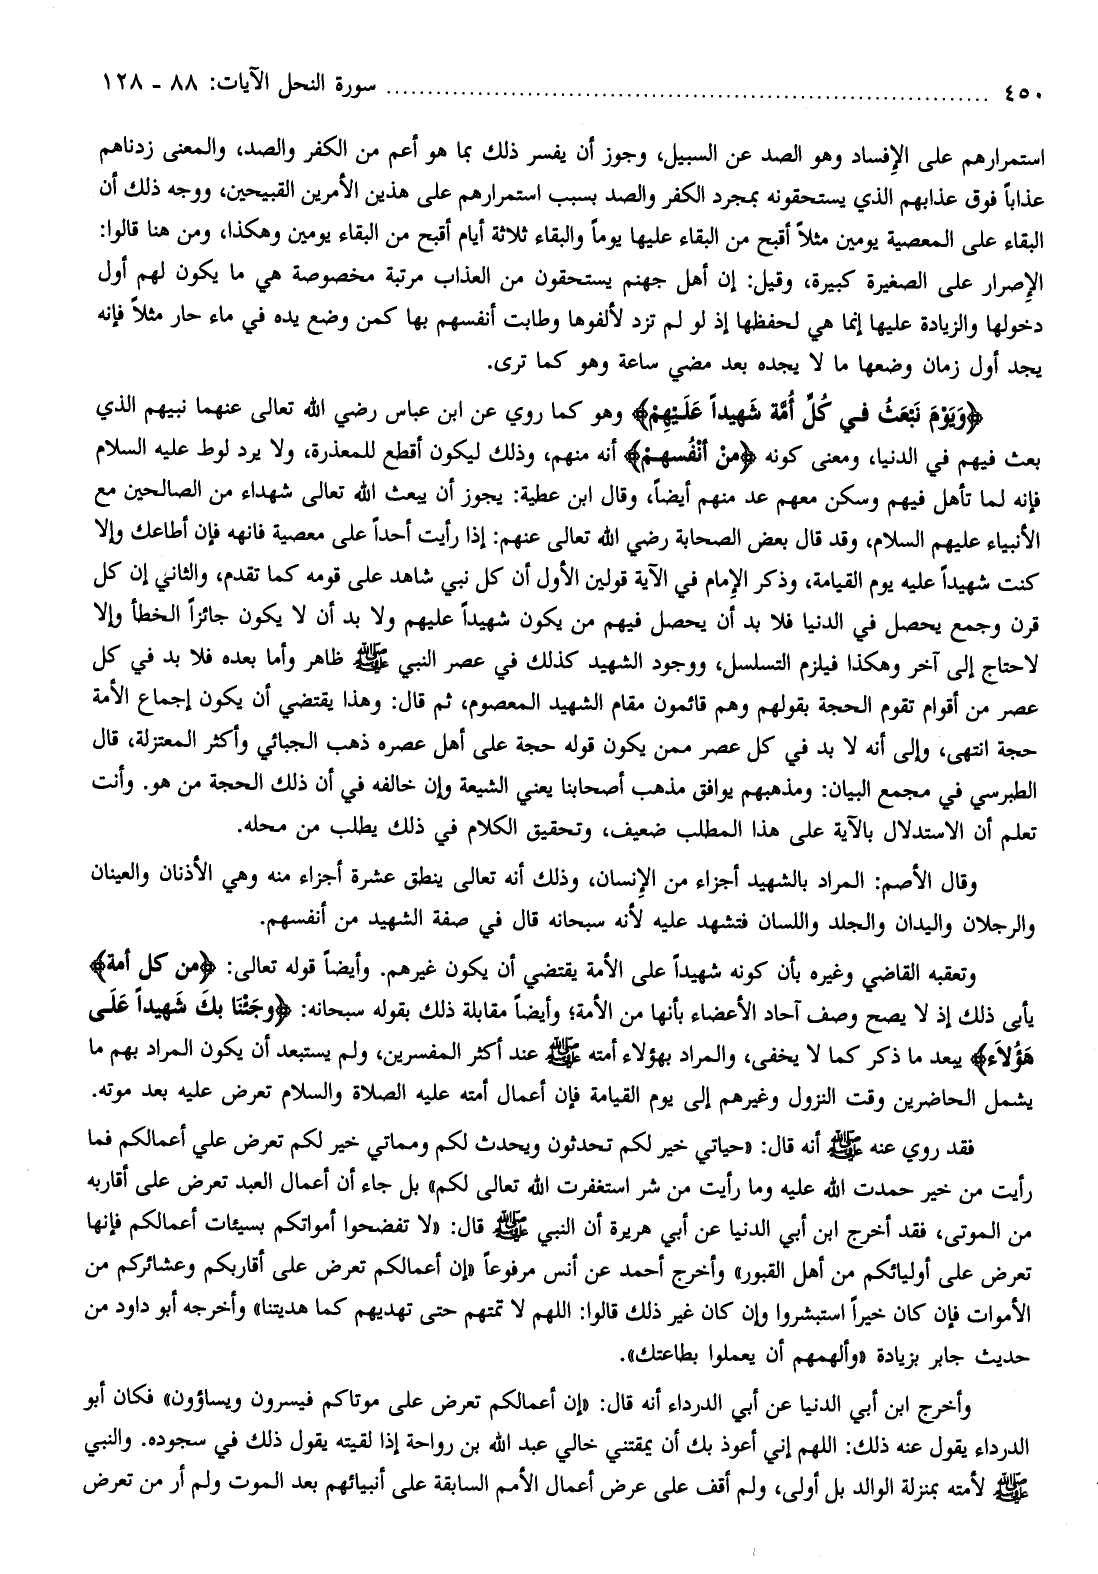 ٤٥٠ ........................................................................ سورة النحل الآيات: ٨٨ - ١٢٨
استمرارهم على الإفساد وهو الصد عن السبيل، وجوز أن يفسر ذلك بما هو أعم من الكفر والصد، والمعنى زدناهم
عذاباً فوق عذابهم الذي يستحقونه بمجرد الكفر والصد بسبب استمرارهم على هذين الأمرين القبيحين، ووجه ذلك أن
البقاء على المعصية يومين مثلاً أقبح من البقاء عليها يوماً والبقاء ثلاثة أيام أقبح من البقاء يومين وهكذا، ومن هنا قالوا:
الإصرار على الصغيرة كبيرة، وقيل: إن أهل جهنم يستحقون من العذاب مرتبة مخصوصة هي ما يكون لهم أول
دخولها والزيادة عليها إنما هي لحفظها إذ لو لم تزد لألفوها وطابت أنفسهم بها كمن وضع يده في ماء حار مثلاً فإنه
يجد أول زمان وضعها ما لا يجده بعد مضي ساعة وهو كما ترى.
﴿وَيَوْمَ نَبْعَثُ فـي كُلِّ أُمَّة شَهيداً عَلَـيْهِمْ﴾ وهو كما روي عن ابن عباس رضي الله تعالى عنهما نبيهم الذي
بعث فيهم في الدنيا، ومعنى كونه ﴿منْ أنْفُسهـمْ﴾ أنه منهم، وذلك ليكون أقطع للمعذرة، ولا يرد لوط عليه السلام
فإنه لما تأهل فيهم وسكن معهم عد منهم أيضاً، وقال ابن عطية: يجوز أن يبعث الله تعالى شهداء من الصالحين مع
الأنبياء عليهم السلام، وقد قال بعض الصحابة رضي الله تعالى عنهم: إذا رأيت أحداً على معصية فانهه فإن أطاعك وإلا
كنت شهيداً عليه يوم القيامة، وذكر الإمام في الآية قولين الأول أن كل نبي شاهد على قومه كما تقدم، والثاني إن كل
قرن وجمع يحصل في الدنيا فلا بد أن يحصل فيهم من يكون شهيداً عليهم ولا بد أن لا يكون جائزاً الخطأ وإلا
لاحتاج إلى آخر وهكذا فيلزم التسلسل، ووجود الشهيد كذلك في عصر النبي ﷺ ظاهر وأما بعده فلا بد في كل
عصر من أقوام تقوم الحجة بقولهم وهم قائمون مقام الشهيد المعصوم، ثم قال: وهذا يقتضي أن يكون إجماع الأمة
حجة انتهى، وإلى أنه لا بد في كل عصر ممن يكون قوله حجة على أهل عصره ذهب الجبائي وأكثر المعتزلة، قال
الطبرسي في مجمع البيان: ومذهبهم يوافق مذهب أصحابنا يعني الشيعة وإن خالفه في أن ذلك الحجة من هو. وأنت
تعلم أن الاستدلال بالآية على هذا المطلب ضعيف، وتحقيق الكلام في ذلك يطلب من محله.
وقال الأصم: المراد بالشهيد أجزاء من الإنسان، وذلك أنه تعالى ينطق عشرة أجزاء منه وهي الأذنان والعينان
والرجلان واليدان والجلد واللسان فتشهد عليه لأنه سبحانه قال في صفة الشهيد من أنفسهم.
وتعقبه القاضي وغيره بأن كونه شهيداً على الأمة يقتضي أن يكون غيرهم. وأيضاً قوله تعالى: ﴿من كل أمة﴾
يأبى ذلك إذ لا يصح وصف آحاد الأعضاء بأنها من الأمة؛ وأيضاً مقابلة ذلك بقوله سبحانه: ﴿وجئْنَا بكَ شَهيداً عَلَـى
هَؤُلاَء﴾ يبعد ما ذكر كما لا يخفى، والمراد بهؤلاء أمته ﷺ عند أكثر المفسرين، ولم يستبعد أن يكون المراد بهم ما
يشمل الحاضرين وقت النزول وغيرهم إلى يوم القيامة فإن أعمال أمته عليه الصلاة والسلام تعرض عليه بعد موته.
فقد روي عنه ﷺ أنه قال: «حياتي خير لكم تحدثون ويحدث لكم ومماتي خير لكم تعرض علي أعمالكم فما
رأيت من خير حمدت الله عليه وما رأيت من شر استغفرت الله تعالى لكم» بل جاء أن أعمال العبد تعرض على أقاربه
من الموتى، فقد أخرج ابن أبي الدنيا عن أبي هريرة أن النبي ﷺ قال: «لا تفضحوا أمواتكم بسيئات أعمالكم فإنها
تعرض على أوليائكم من أهل القبور» وأخرج أحمد عن أنس مرفوعاً «إن أعمالكم تعرض على أقاربكم وعشائركم من
الأموات فإن كان خيراً استبشروا وإن كان غير ذلك قالوا: اللهم لا تمتهم حتى تهديهم كما هديتنا» وأخرجه أبو داود من
حديث جابر بزيادة «وألهمهم أن يعملوا بطاعتك».
وأخرج ابن أبي الدنيا عن أبي الدرداء أنه قال: «إن أعمالكم تعرض على موتاكم فيسرون ويساؤون» فكان أبو
الدرداء يقول عنه ذلك: اللهم إني أعوذ بك أن يمقتني خالي عبد الله بن رواحة إذا لقيته يقول ذلك في سجوده. والنبي
ﷺ لأمته بمنزلة الوالد بل أولى، ولم أقف على عرض أعمال الأمم السابقة على أنبيائهم بعد الموت ولم أر من تعرض